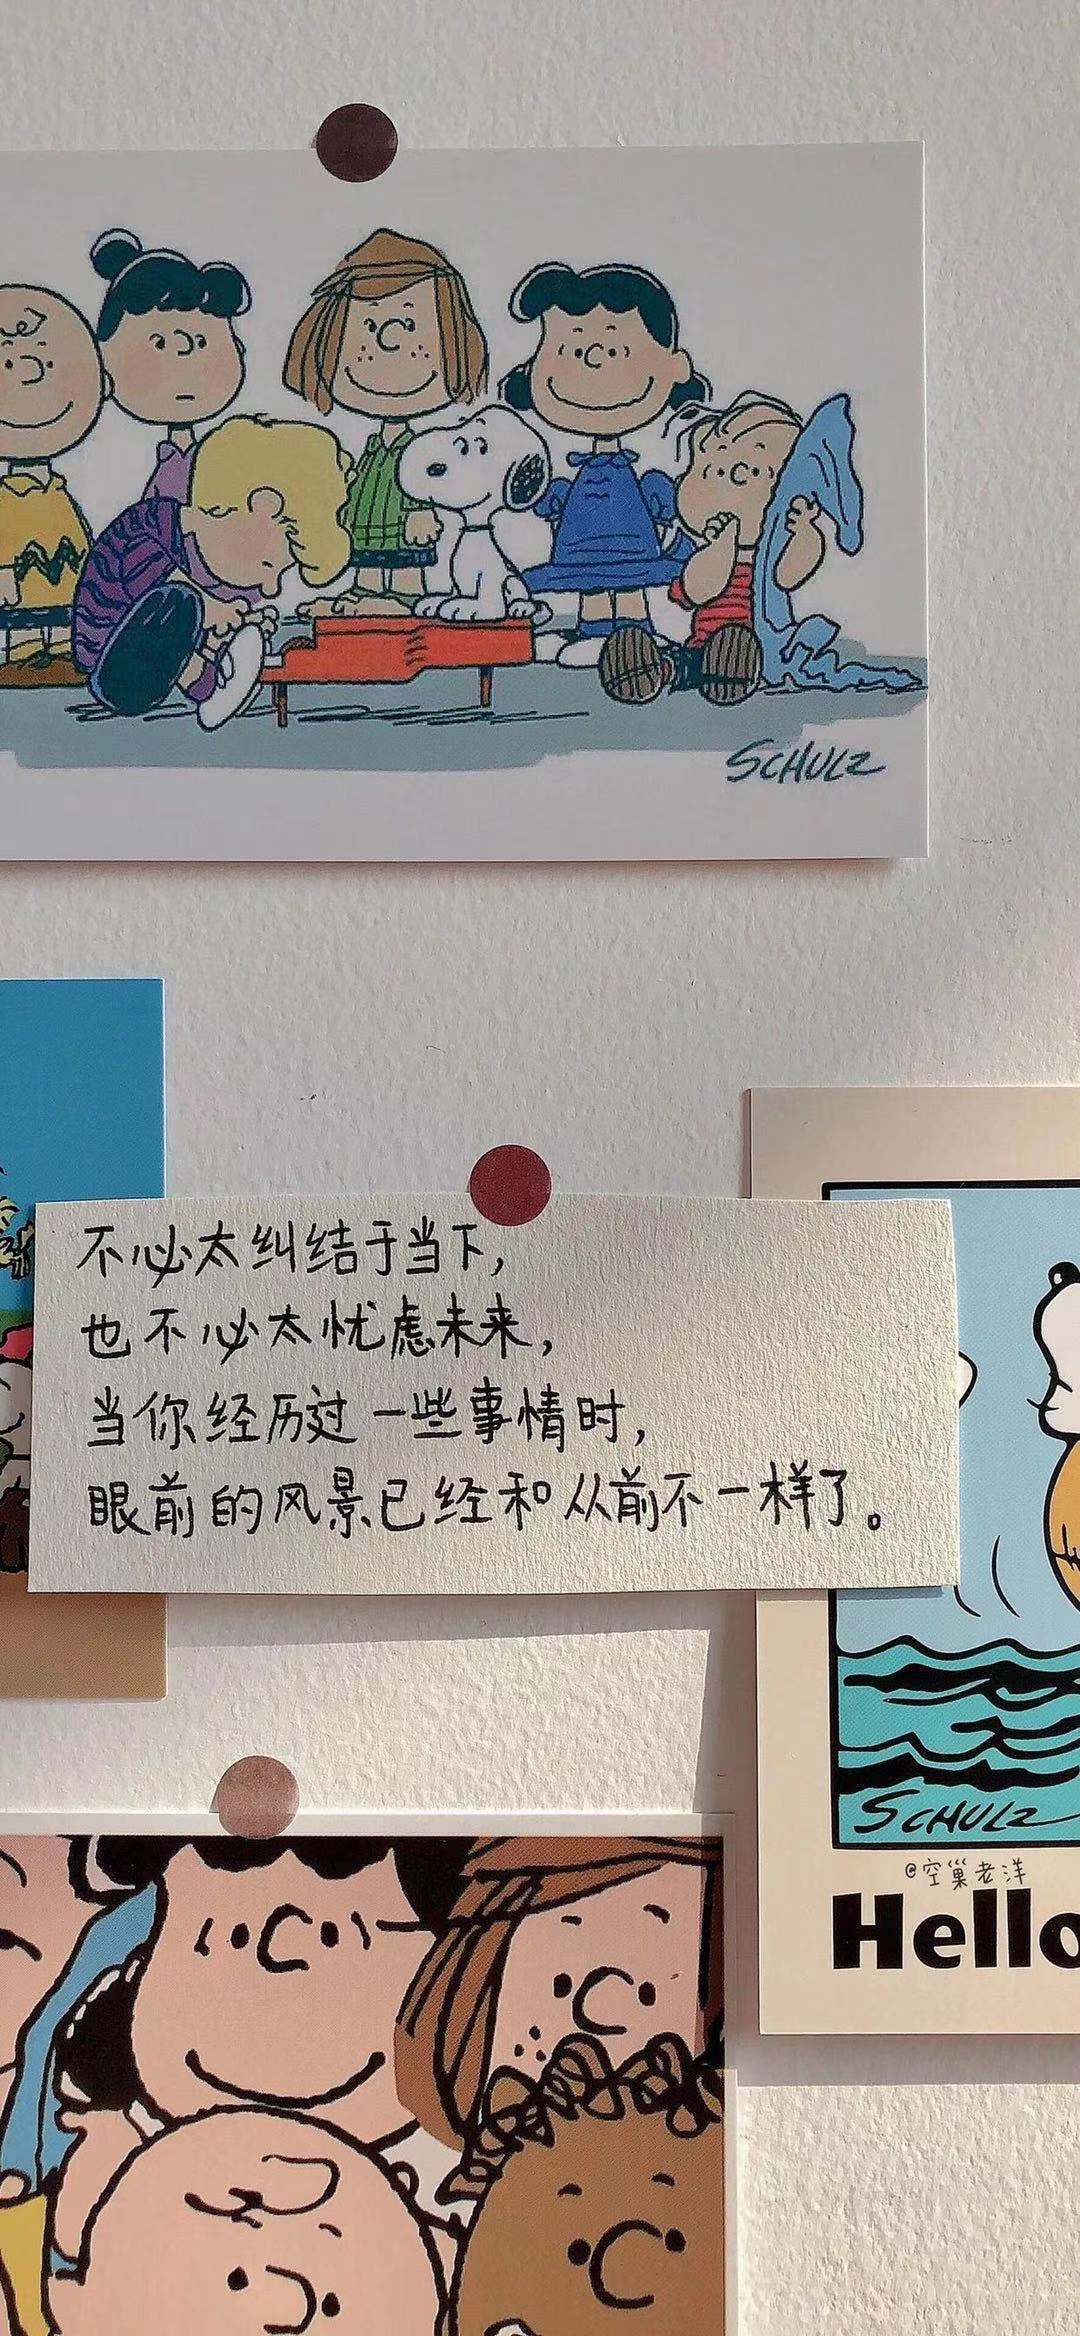 SCHULZ
不必太纠结于当下,
也不必太忧虑未来,
当你经历过一些事情时,
眼前的风景已经和从前不一样了。
SCHULZ
@空巢老洋
Hello